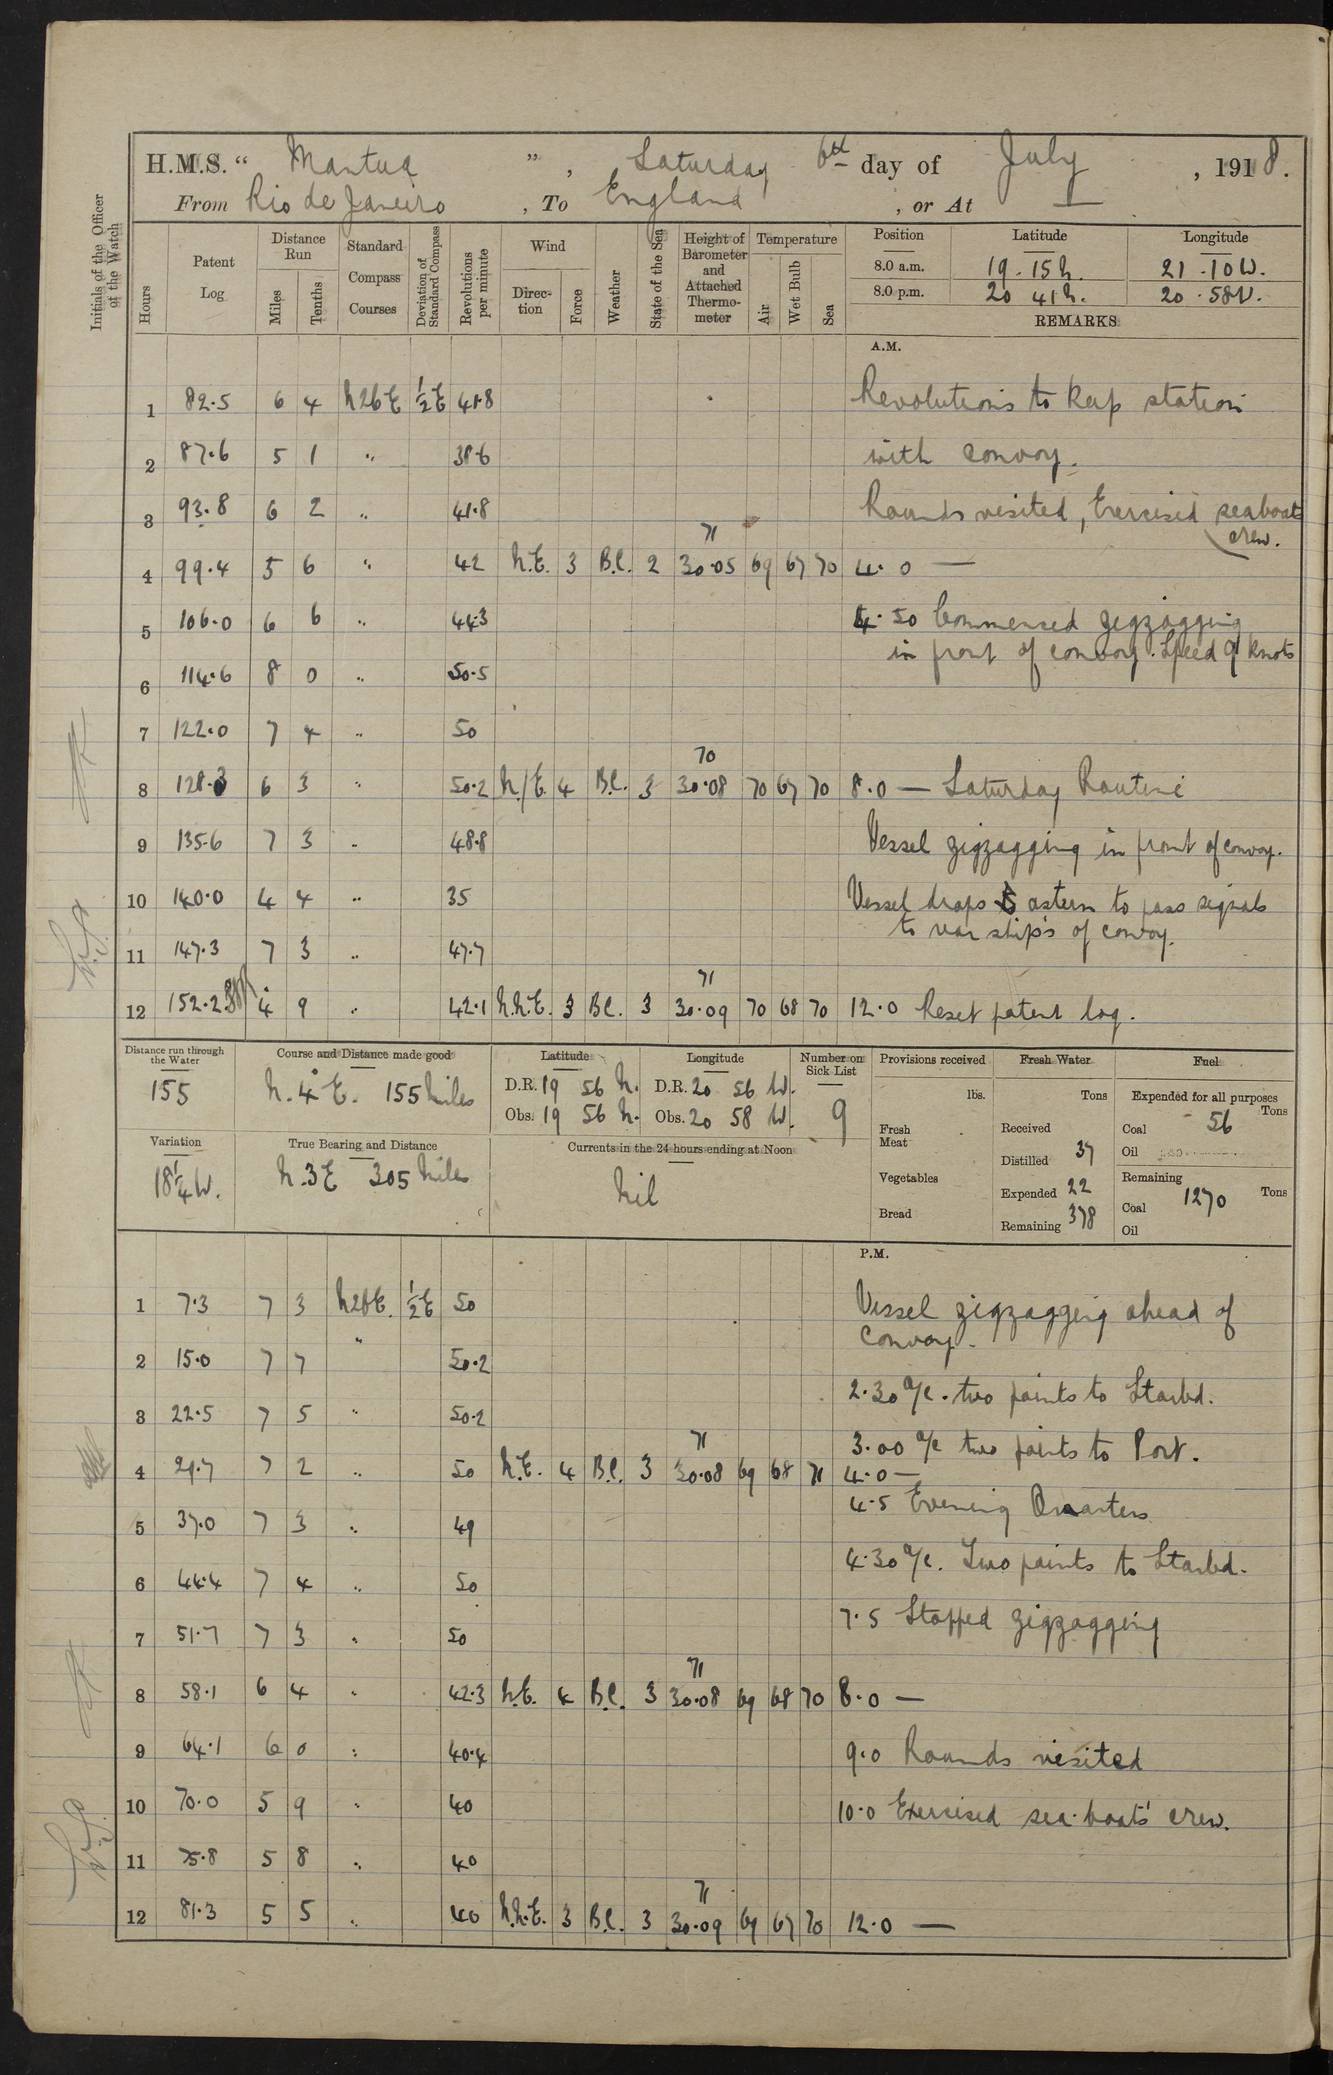 H.M.S. “ Mantua ”, Saturday 6th day of July, 1918.
From Rio de Janeiro, To England, or At —
Initials of the Officer of the Watch
Hours
Patent Log
Distance Run
Miles
Tenths
Standard Compass Courses
Deviation of Standard Compass
Revolutions per minute
Wind
Direction
Force
Weather
State of the Sea
Height of Barometer and Attached Thermometer
Temperature
Air
Wet Bulb
Sea
Position Latitude Longitude
8.0 a.m. 19. 15 N. 21. 10 W.
8.0 p.m. 20 41 N. 20. 58 W.
REMARKS
A.M.
1 82.5 6 4 N26E ½E 41.8 Revolutions to keep station
2 87.6 5 1 " 38.6 with convoy.
3 93.8 6 2 " 41.8 Rounds visited, Exercised seaboats crew.
71
4 99.4 5 6 " 42 N.E. 3 B.C. 2 30.05 69 67 70 4.0 —
5 106.0 6 6 " 44.3 4.50 Commenced zigzagging
in front of convoy. Speed 9 knots
6 114.6 8 0 " 50.5
7 122.0 7 4 " 50
70
8 128.3 6 3 " 50.2 N/E 4 B.C. 3 30.08 70 67 70 8.0 — Saturday Routine
9 135.6 7 3 " 48.8 Vessel zigzagging in front of convoy.
10 140.0 4 4 " 35 Vessel drops astern to pass signals
to var ship's of convoy.
11 147.3 7 3 " 47.7
71
12 152.2 4 9 " 42.1 N.N.E. 3 B.C. 3 30.09 70 68 70 12.0 Reset patent log.
Distance run through the Water
155
Course and Distance made good
N. 4° E. 155 Miles
Latitude
D.R. 19 56 N.
Obs. 19 56 N.
Longitude
D.R. 20 56 W.
Obs. 20 58 W.
Number on Sick List
9
Provisions received
lbs.
Fresh Meat
Vegetables
Bread
Fresh Water
Tons
Received
Distilled 37
Expended 22
Remaining 378
Fuel
Expended for all purposes
Tons
Coal 56
Oil
Remaining
Tons
Coal 1270
Oil
Variation
18¼ W.
True Bearing and Distance
N. 3 E 305 Miles
Currents in the 24 hours ending at Noon
Nil
P.M.
1 7.3 7 3 N26E. ½E 50 Vessel zigzagging ahead of
convoy.
2 15.0 7 7 " 50.2
2.30 a/c. two points to Starbd.
3 22.5 7 5 " 50.2
3.00 a/c two points to Port.
71
4 29.7 7 2 " 50 N.E. 4 B.C. 3 30.08 69 68 71 4.0 —
4.5 Evening Quarters
5 37.0 7 3 " 49
4.30 a/c. Two points to Starbd.
6 44.4 7 4 " 50
7.5 Stopped zigzagging
7 51.7 7 3 " 50
71
8 58.1 6 4 " 42.3 N.E. 4 B.C. 3 30.08 69 68 70 8.0 —
9 64.1 6 0 " 40.4 9.0 Rounds visited
10 70.0 5 9 " 40 10.0 Exercised sea-boats' crew.
11 75.8 5 8 " 40
71
12 81.3 5 5 " 40 N.N.E. 3 B.C. 3 30.09 69 67 70 12.0 —